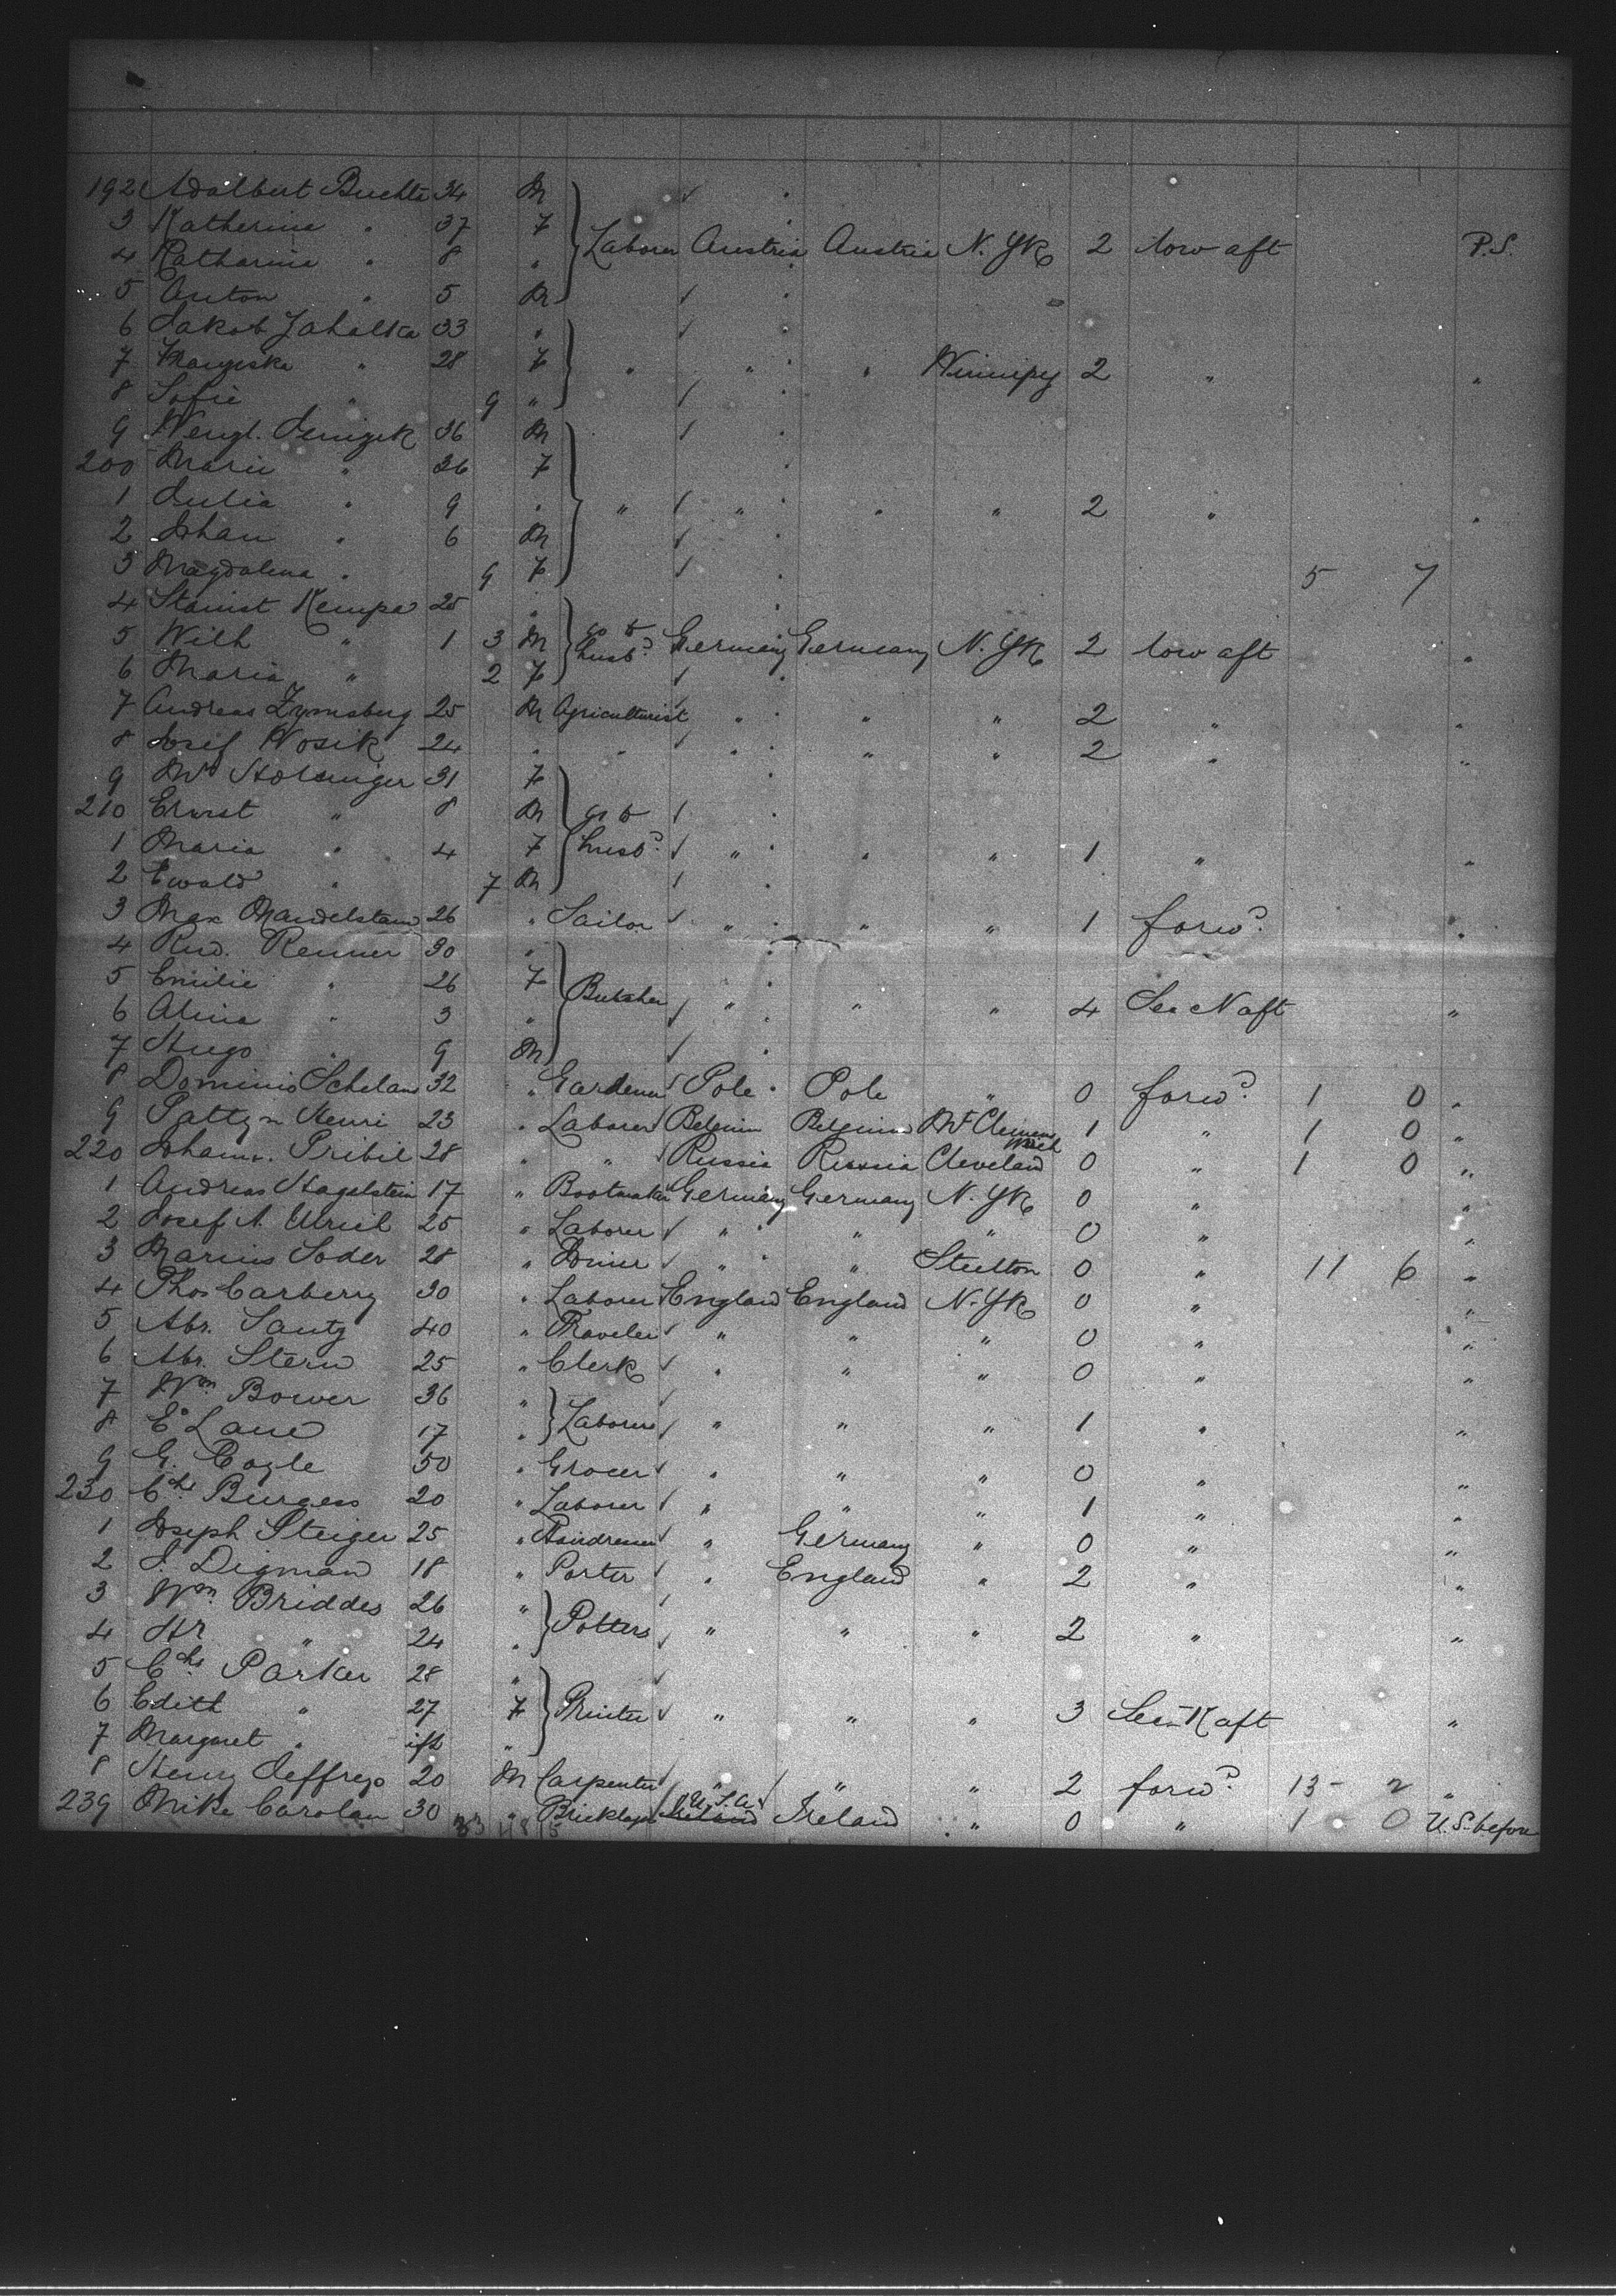 192 Adalbert Buchta 34 M
3 Katherine " 37 F
4 Katharina " 8 " Laborer Austria Austria N. Yk 2 low aft P.S.
5 Anton " 5 M
6 Jakob Zahalka 33 "
7 " 28 F " " " Winnipeg 2 " "
8 Sofie " 9 "
9 Wenzl. 36 M
200 Marie " 36 F
1 Julia " 9 " " " " " 2 " "
2 Johan " 6 M
3 Magdalena " 9 F 5 7
4 Kempa 25 "
5 Wilh " 1 3 M go to husbd Germany Germany N. Yk 2 low aft "
6 Maria " 2 F
7 Andreas 25 M Agriculturist " " " 2 " "
8 Josef Wosik 24 " " " " " 2 " "
9 31 F
210 Ernst " 8 M go to
1 Maria " 4 F husbd " " " 1 " "
2 Ewald " 7 M
3 Max Mandelstam 26 " Sailor " " " 1 forwd "
4 Rud. Renner 30 "
5 Emilie " 26 F
6 Alina " 3 " Butcher " " " 4 Sec N aft "
7 Hugo " 9 M
8 Schelan 32 " Gardener Pole Pole " 0 forwd 1 0 "
9 Pattyn Henri 23 " Laborer Belgium Belgium Mt Clemens Mich 1 " 1 0 "
220 Johann. Pribil 28 " " Russia Russia Cleveland 0 " 1 0 "
1 Andreas Hagelstein 17 " Bootmaker Germany Germany N. Yk 0 " "
2 Josef A. Ulrich 25 " Laborer " " " 0 " "
3 Marius Soder 28 " " " Steelton 0 " 11 6 "
4 Thos Carberry 30 " Laborer England England N. Yk 0 " "
5 Abr. 40 " Traveler " " " 0 " "
6 Abr. Stern 25 " Clerk " " " 0 " "
7 Wm Bower 36 "
8 Ed Lane 17 " Laborers " " " 1 " "
9 G. Cogle 50 " Grocer " " " 0 " "
230 Chs Burgess 20 " Laborer " " " 1 " "
1 Joseph Steiger 25 " Hairdresser " Germany " 0 " "
2 Digman 18 " Porter " England " 2 " "
3 Wm Briddes 26 "
4 Hr " 24 " Potters " " " 2 " "
5 Chs Parker 28 "
6 Edith " 27 F Printer " " " 3 Sec K aft "
7 Margaret " "
8 Henry Jeffreys 20 M Carpenter " " " 2 forwd 13 2 "
239 Mike Carolan 30 " Bricklayer Ireland U.S.A. Ireland " 0 " 1 0 U.S. before